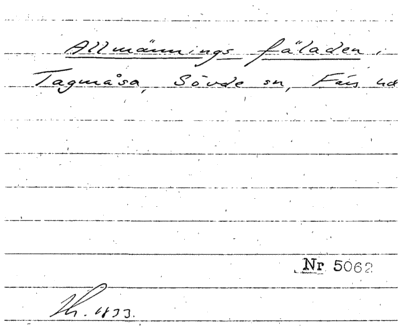 Allmännings fäladen,
Tagmåsa, Sövde sn, Färs hd
Nr 5062
Th. 1833.